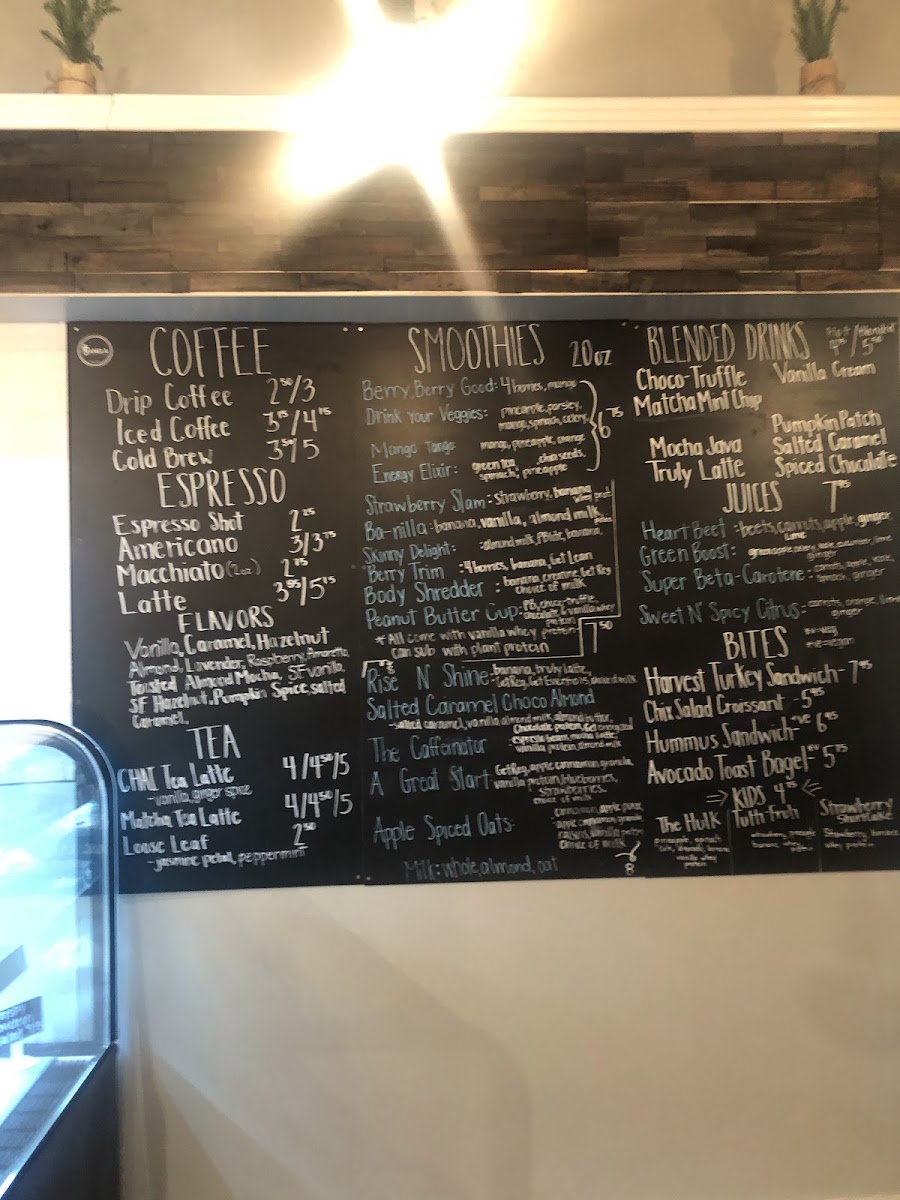 COFFEE
Drip Coffee 2⁵⁰/3
Iced Coffee 3⁷⁵/4⁷⁵
Cold Brew 3⁵⁰/5
ESPRESSO
Espresso Shot 2²⁵
Americano 3/3⁷⁵
Macchiato (2oz) 2⁷⁵
Latte 3⁹⁵/5¹⁵
FLAVORS
Vanilla, Caramel, Hazelnut
Almond, Lavender, Raspberry, Amaretto
Toasted Almond Mocha, SF Vanilla,
SF Hazelnut, Pumpkin Spice, salted
Caramel,
TEA
CHAI Tea Latte 4/4⁵⁰/5
-vanilla, ginger spice
Matcha Tea Latte 4/4⁵⁰/5
Loose Leaf 2⁵⁰
-jasmine petal, peppermint
SMOOTHIES 20oz
Berry, Berry Good: 4 berries, mango
Drink Your Veggies: pineapple, parsley,
mango, spinach, celery
6⁷⁵
Mango Tango mango, pineapple, orange
Energy Elixir: green tea, chia seeds,
spinach, pineapple
Strawberry Slam: strawberry, banana
whey prot.
Ba-nilla: banana, vanilla, almond milk,
Skinny Delight: almond milk, PBlite, banana,
Berry Trim : 4 berries, banana, Get Lean
Body Shredder : banana, creatine, Get Rey
choice of milk
Peanut Butter Cup: PB, choc, truffle,
chocolate & vanilla whey
protein
*All come with vanilla whey protein
can sub with plant protein
7⁵⁰
Rise N Shine: banana, truly latte,
Salted Caramel Choco Almond
-salted caramel, vanilla almond milk, almond butter,
The Caffeinator
vanilla protein, almond milk
A Great Start: apple cinnamon granola,
vanilla protein, blueberries,
strawberries,
choice of milk
Apple Spiced Oats- cinnamon, apple pure,
apple cinnamon granola
raisins, vanilla protein
Choice of milk
8
Milk: whole, almond, oat
BLENDED DRINKS
Choco-Truffle Vanilla Cream
Matcha Mint Chip
Pumpkin Patch
Mocha Java Salted Caramel
Truly Latte Spiced Chocolate
JUICES 7⁹⁵
Heart Beet : beets, carrots, apple, ginger,
lime
Green Boost:
ginger
Super Beta-Carotene: carrots, apple, kale,
spinach, ginger
Sweet N' Spicy Citrus: carrots, orange, lime
ginger
BITES
Harvest Turkey Sandwich- 7⁹⁵
Chix Salad Croissant 5⁹⁵
Hummus Sandwich-ᵛᴱ 6⁹⁵
Avocado Toast Bagel- 5⁷⁵
KIDS 4⁷⁵
The Hulk Tutti Fruti Strawberry
Shortcake
whey protein